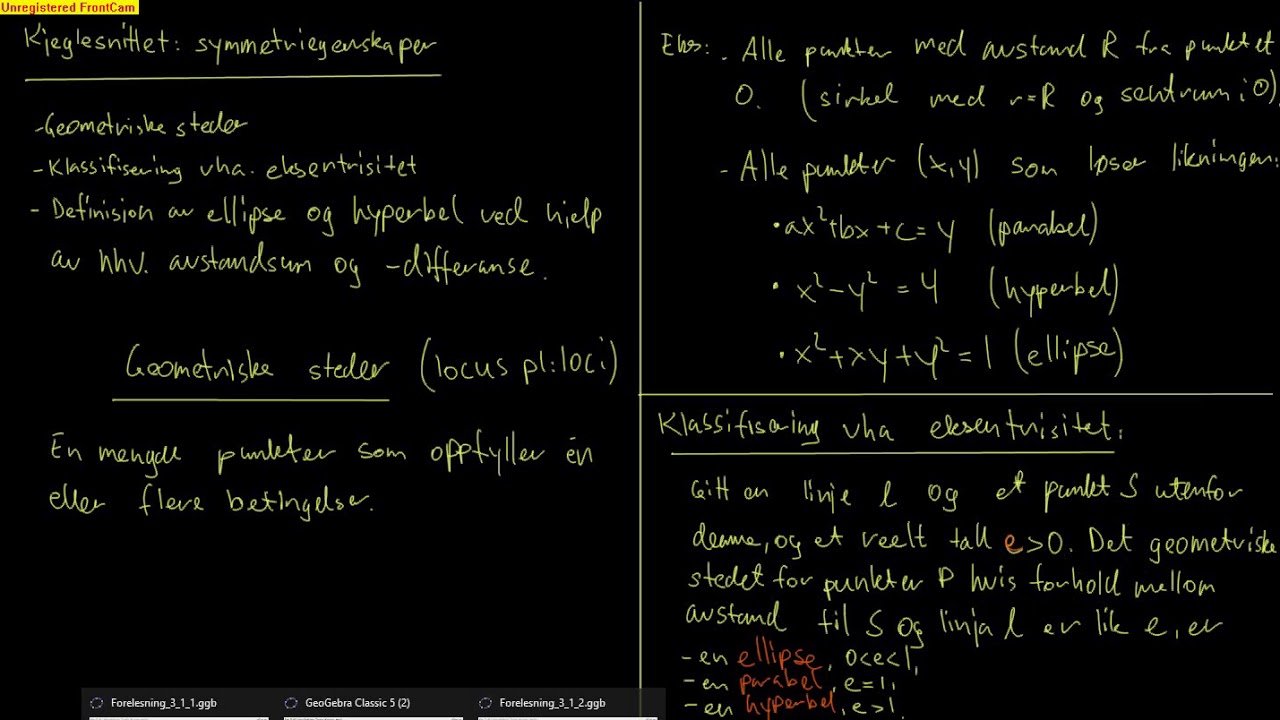 Unregistered FrontCam
Kjeglesnittet: symmetriegenskaper
-Geometriske steder
-Klassifisering vha. eksentrisitet
- Definisjon av ellipse og hyperbel ved hjelp
av hhv. avstandsum og -differanse.
Geometriske steder (locus pl:loci)
En mengde punkter som oppfyller én
eller flere betingelser.
Eks: . Alle punkter med avstand R fra punktet
O. (sirkel med r=R og sentrum i O)
- Alle punkter (x,y) som løser likningen:
• ax²+bx+c=y (parabel)
• x²-y² = 4 (hyperbel)
• x²+xy+y²=1 (ellipse)
Klassifisering vha eksentrisitet:
Gitt en linje l og et punkt S utenfor
denne, og et reelt tall e>0. Det geometriske
stedet for punkter P hvis forhold mellom
avstand til S og linja l er lik e, er
-en ellipse, 0<e<1,
-en parabel, e=1,
-en hyperbel, e>1.
Forelesning_3_1_1.ggb GeoGebra Classic 5 (2) Forelesning_3_1_2.ggb